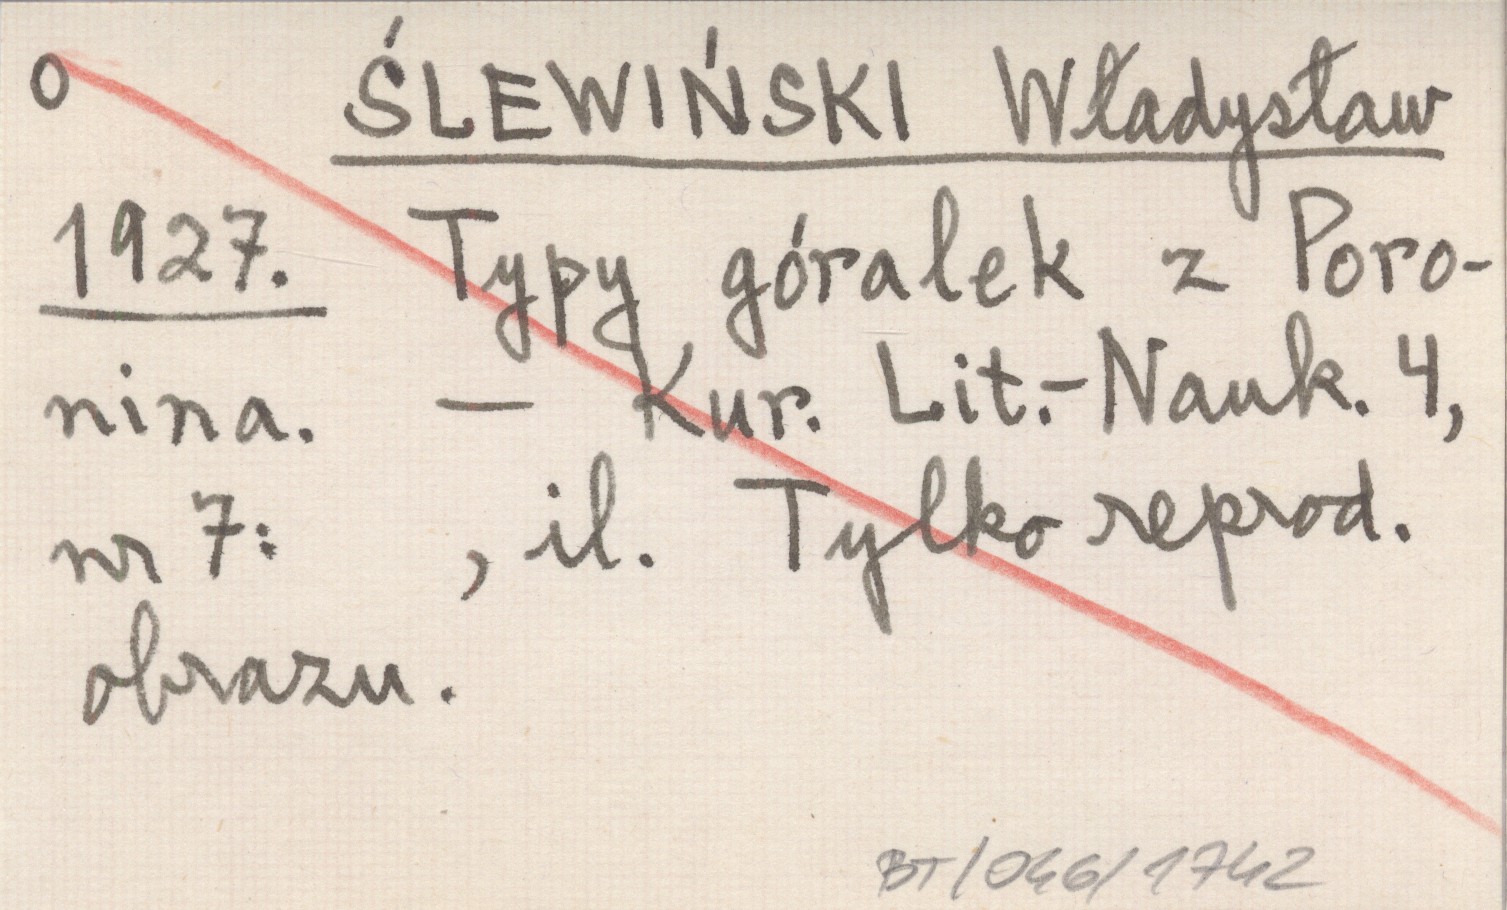 o ŚLEWIŃSKI Władysław
1927. Typy góralek z Poro-
nina. — Kur. Lit.-Nauk. 4,
nr 7: , il. Tylko reprod.
obrazu.
BT/046/1742